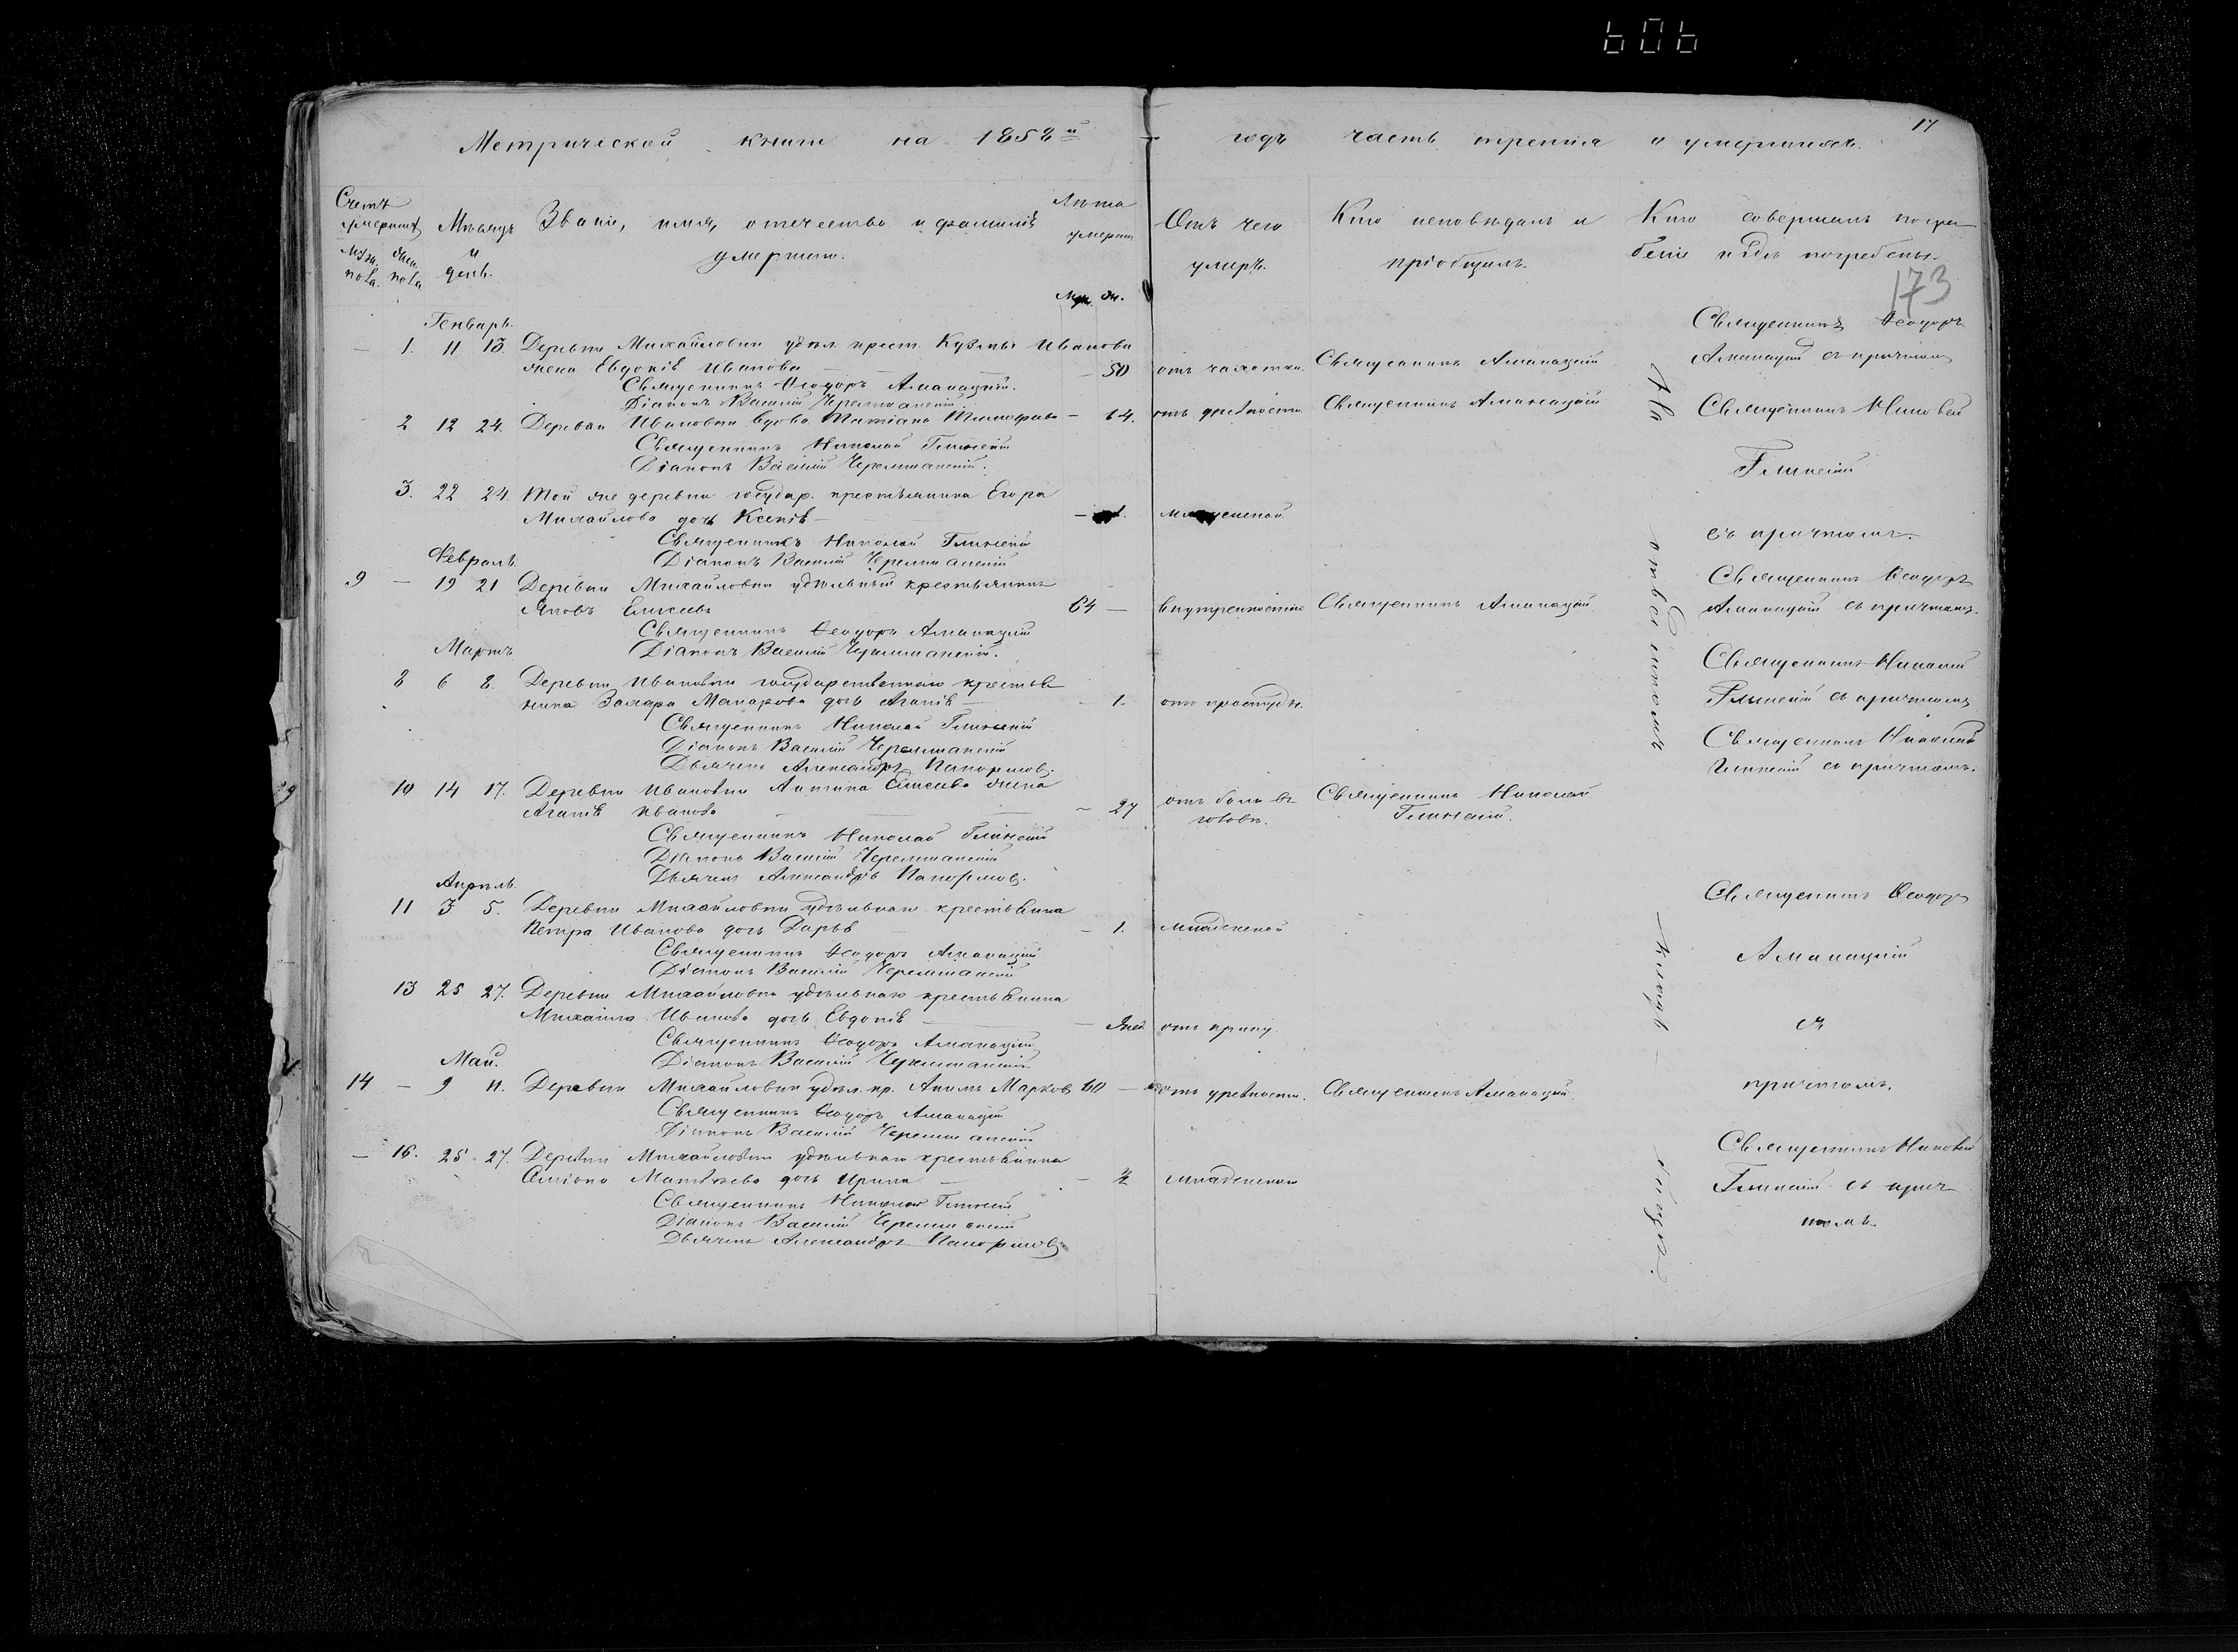 606
17
Метрической книги на 1858й годъ часть третія о умершихъ.
Счетъ умершихъ
Муж. пола. Жен. пола
Мѣсяцъ и день.
Званіе, имя, отчество и фамилія умершихъ.
Лѣта умерш.
Муж. Жен.
Отъ чего умеръ.
Кто исповѣдалъ и пріобщилъ.
Кто совершалъ погребеніе и гдѣ погребены.
173
Генварь.
— 1. 11 13. Деревни Михайловки удѣл. крест. Кузьмы Иванова
жена Евдокія Иванова — 50 отъ чахотки. Священникъ Аманацкій
Священникъ Ѳеодоръ Аманацкій съ причтомъ
Священникъ Ѳеодоръ Аманацкій.
Діаконъ Василій Черемшанскій
2 12 24. Деревни Ивановки вдова Татіана — 64. отъ древности. Священникъ Аманацкій
Священникъ Николай Глинскій
Діаконъ Василій Черемшанскій.
Священникъ Николай
Глинскій
съ причтомъ.
3. 22 24. Той же деревни государ. крестьянина Егора
Михайлова дочь Ксенія — 1. младенской
Священникъ Николай Глинскій
Діаконъ Василій Черемшанскій
Февраль.
9 — 19 21 Деревни Михайловки удѣльный крестьянинъ
Яковъ Елисеевъ 64 — Священникъ Аманацкій
Священникъ Ѳеодоръ
Аманацкій съ причтомъ.
Священникъ Ѳеодоръ Аманацкій
Діаконъ Василій Черемшанскій.
Мартъ
8 6 8. Деревни Ивановки государственнаго крестья
нина Захара Макарова дочь Агапія — 1. отъ простуды.
Священникъ Николай
Глинскій съ причтомъ
Священникъ Николай Глинскій
Діаконъ Василій Черемшанскій
Дьячекъ Александръ
Священникъ Николай
Глинскій съ причтомъ.
10 14 17. Деревни Ивановки Антипа Елисеева жена
Агапія Иванова — 27 отъ боли въ головѣ. Священникъ Николай Глинскій.
Священникъ Николай Глинскій
Діаконъ Василій Черемшанскій
Дьячекъ Александръ
Апрѣль.
11 3 5. Деревни Михайловки удѣльнаго крестьянина
Петра Иванова дочь Дарья — 1. младенской
Священникъ Ѳеодоръ Аманацкій
Діаконъ Василій Черемшанскій
Священникъ Ѳеодоръ
Аманацкій
съ
причтомъ.
13 25 27. Деревни Михайловки удѣльнаго крестьянина
Михаила Иванова дочь Евдокія — отъ крику
Священникъ Ѳеодоръ Аманацкій
Діаконъ Василій Черемшанскій
Май.
14 — 9 11. Деревни Михайловки удѣл. кр. Марковъ 60 — отъ древности. Священникъ Аманацкій.
Священникъ Ѳеодоръ Аманацкій
Діаконъ Василій Черемшанскій
— 16. 25 27. Деревни Михайловки удѣльнаго крестьянина
Матвѣева дочь Ирина — младенской
Священникъ Николай Глинскій
Діаконъ Василій Черемшанскій
Дьячекъ Александръ
Священникъ Николай
Глинскій съ прич
томъ.
На
кладбищѣ.